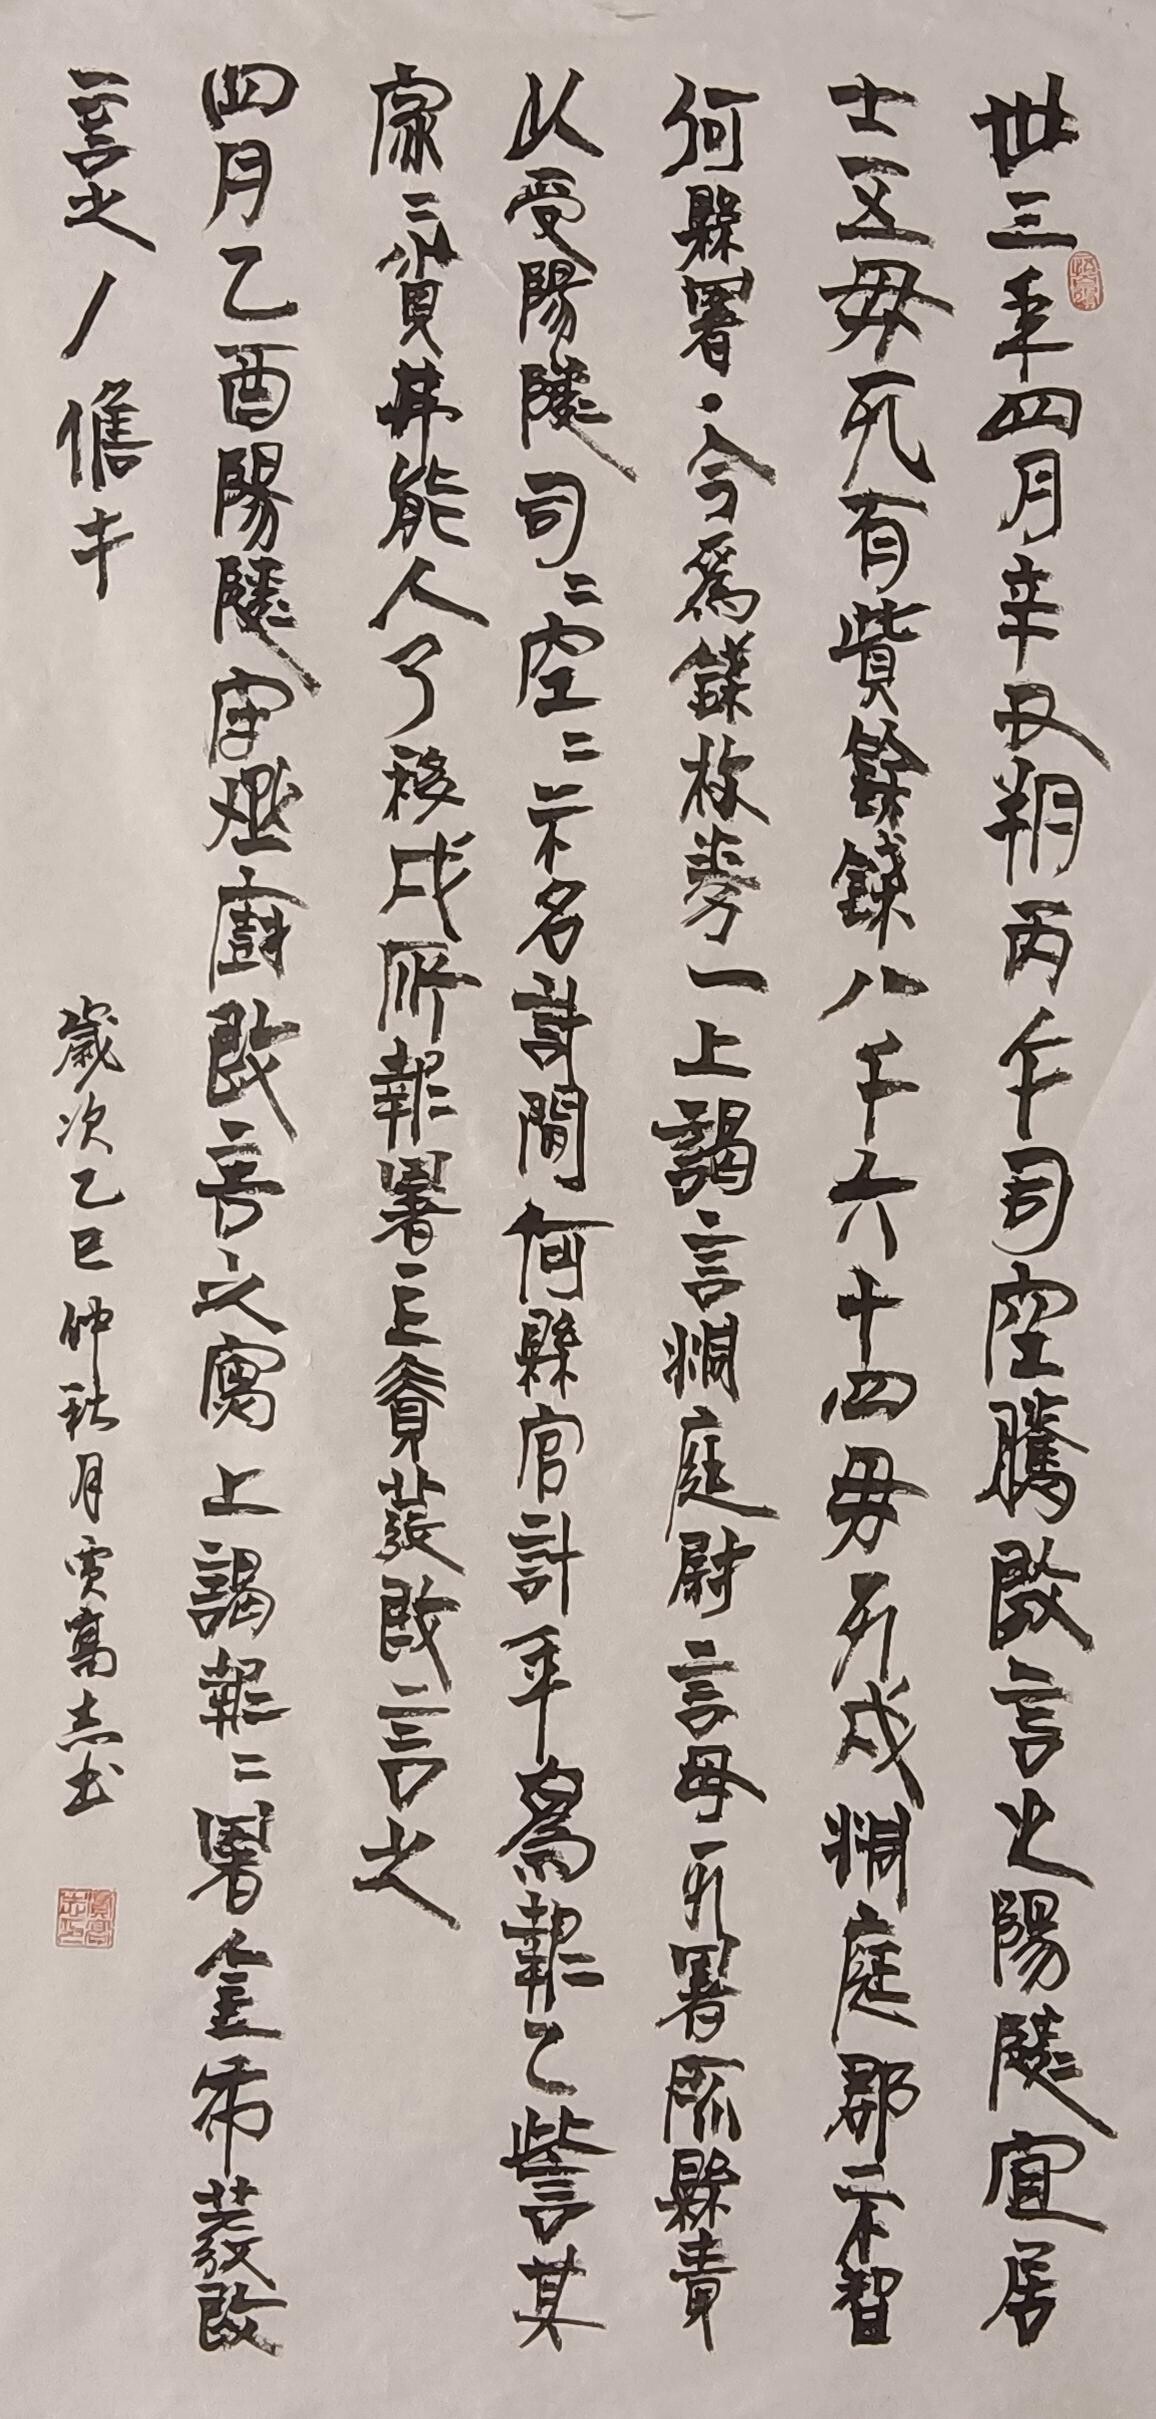 卅三年四月辛丑朔丙午司空騰敢言之陽陵宜居
士五毋死有貲餘錢八千六十四毋死戍洞庭郡不智
何縣署·今為錢校券一上謁言洞庭尉言毋死署所縣責
以受陽陵司〓空〓不名計問何縣官計年為報已訾其
家〓貧弗能入乃移戍所報署主責發敢言之
四月乙酉陽陵守丞廚敢言之寫上謁報〓署金布發敢
言之/儋手
歲次乙巳仲秋月賈高志书